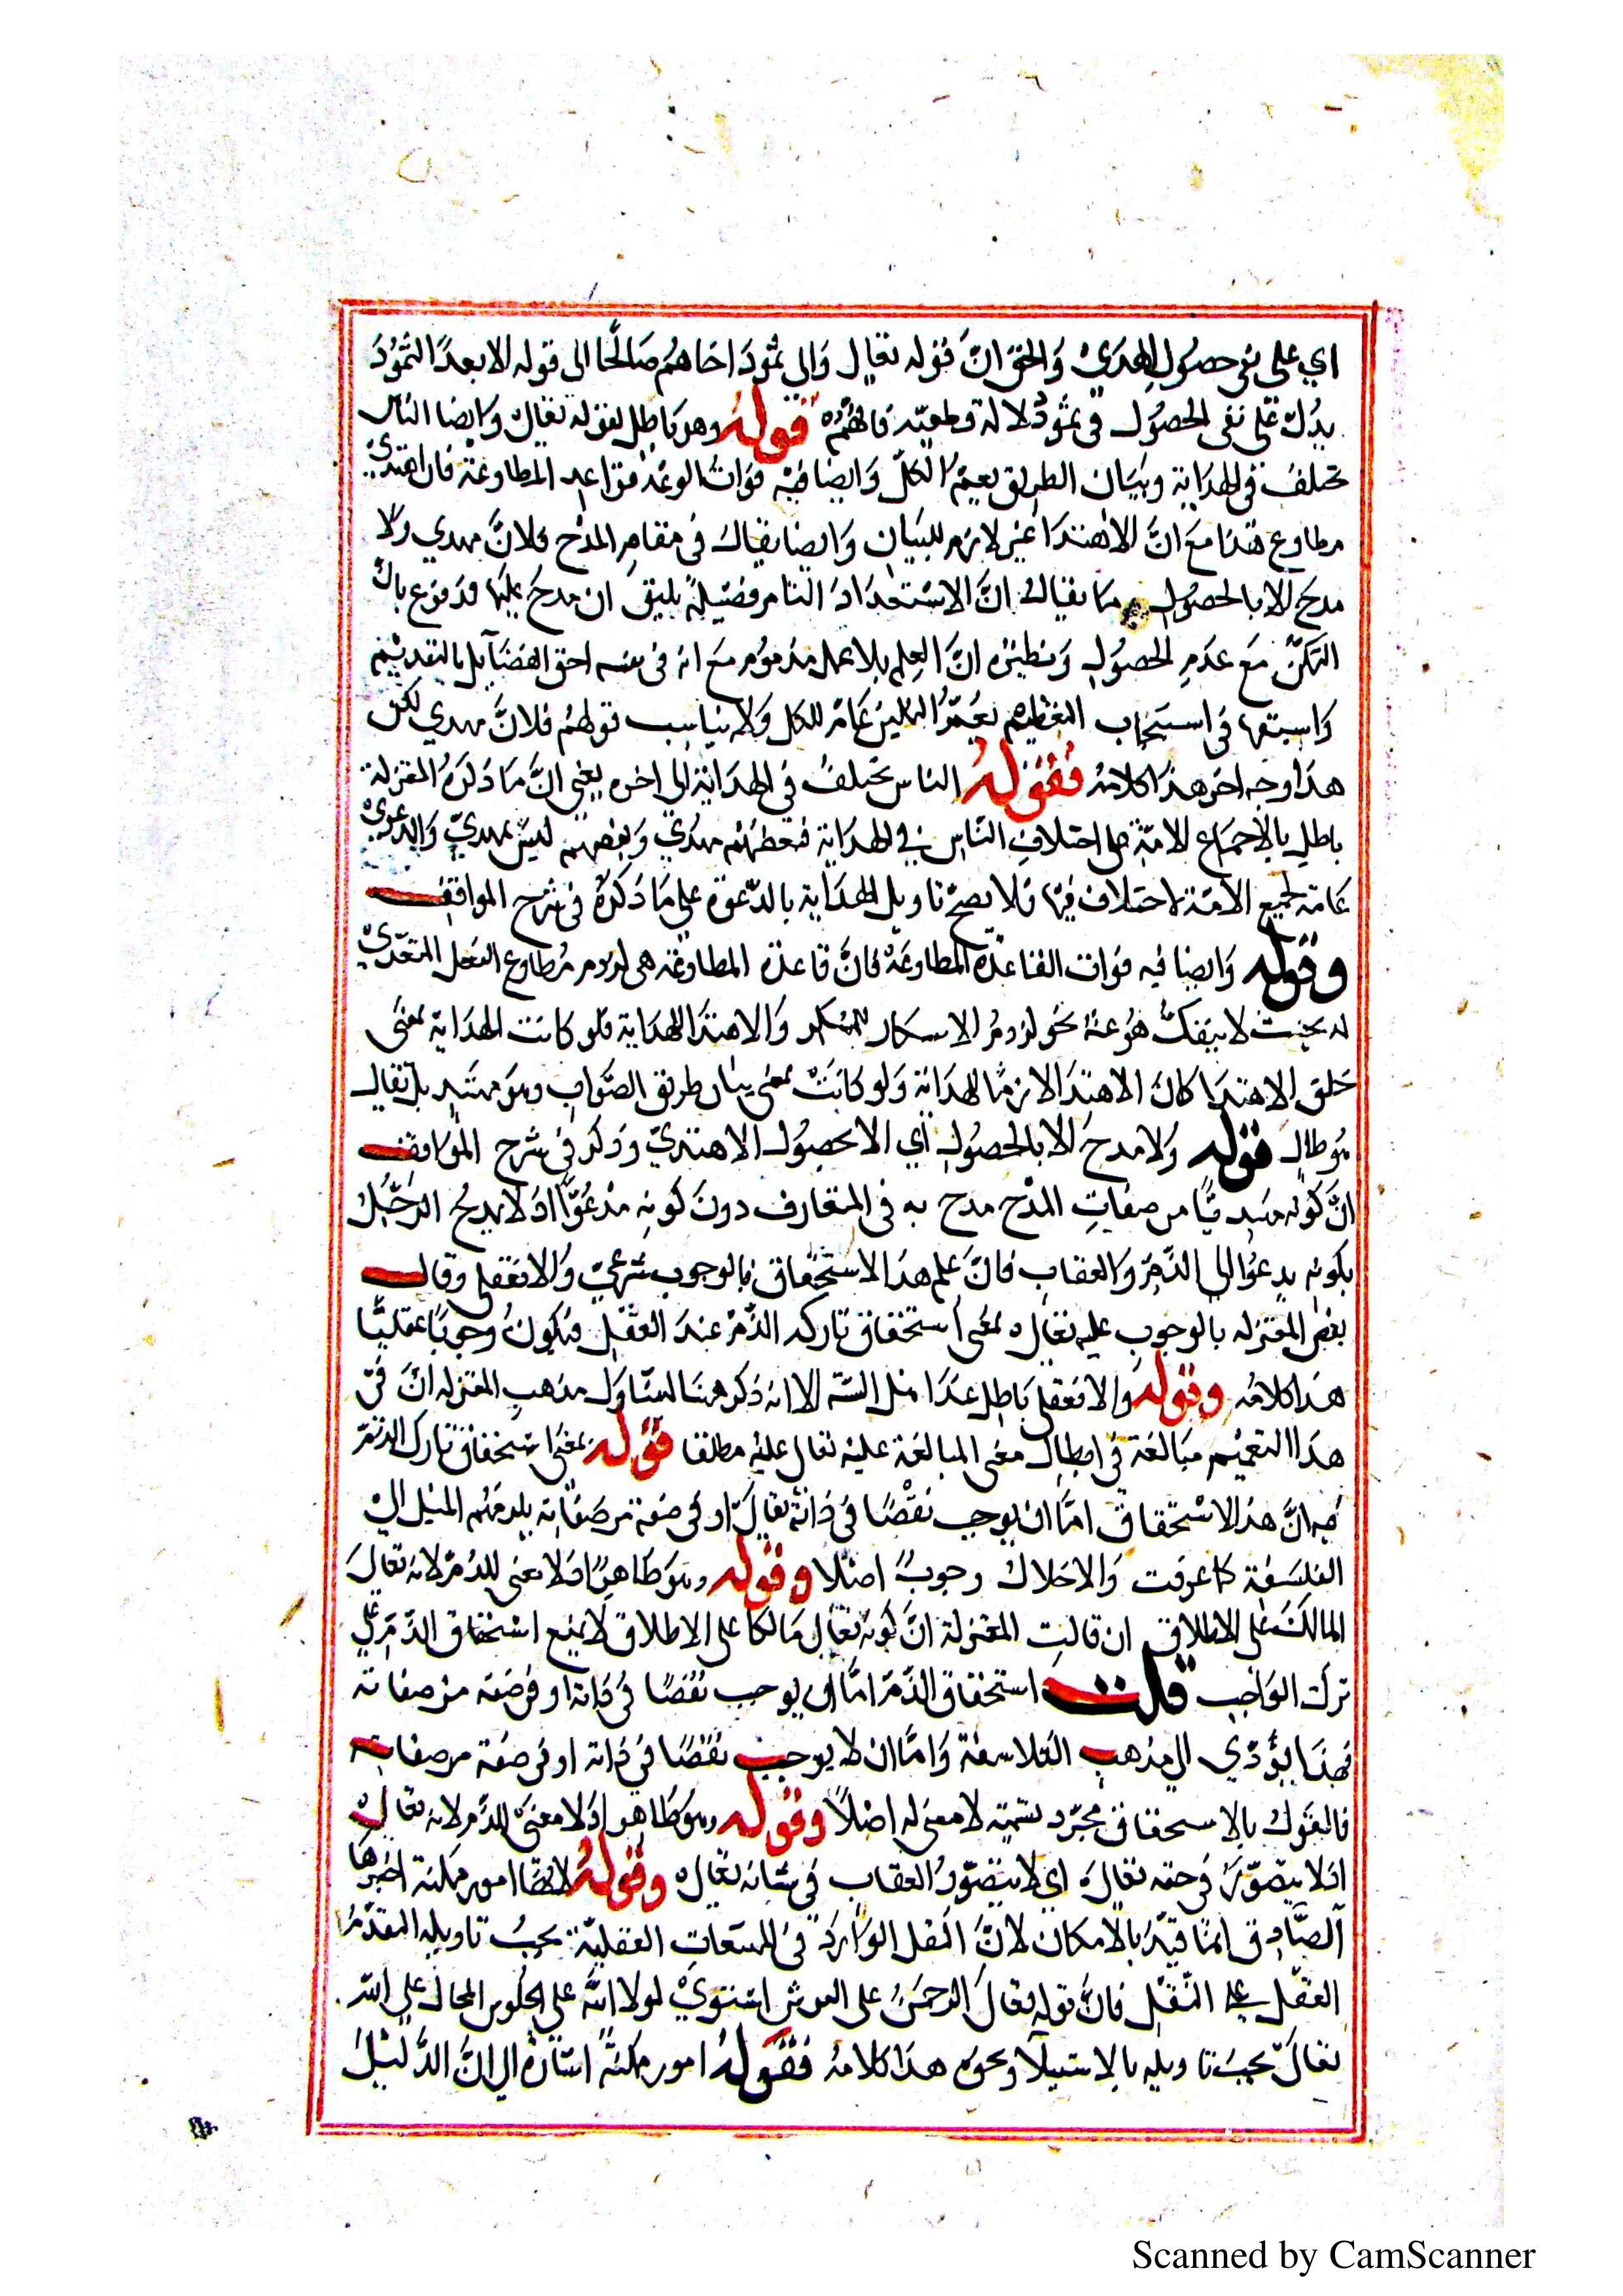 اي على نفى حصول الهدي والحق ان قوله تعالى والى ثمود اخاهم صالحا الى قوله الا بعدا لثمود
يدل على نفى الحصول فى ثمود دلالة قطعيّة فافهم قوله وهو باطل لقوله تعالى وايضا الناس
تختلف فى الهداية وبيان الطريق يعم الكل وايضا فيه فوات الوعد قواعد المطاوعة فان اهتدى
مطاوع هدا مع ان الاهتدا غير لازم للبيان وايضا يقال فى مقام المدح فلان مهدي ولا
مدح الا بالحصول وما يقال ان الاستعداد التام فضيلة يليق ان يمدح عليها فدفوع بان
التمكن مع عدم الحصول ونظيره ان العلم بلا عمل مذموم مع انه فى نفسه احق الفضايل بالتقديم
واسبقها فى استيجاب التعظيم عام للكل ولا يناسب قولهم فلان مهدي لكن
هذا وجه اخر هذا كلامه فقوله الناس تختلف في الهداية الى اخره يعني ان ما ذكره المعتزلة
باطل بالاجماع الامة على اختلاف الناس في الهداية فبعضهم مهدي وبعضهم ليس بمهديّ والدعوي
عامة لجميع الامة لا اختلاف فيها فلا يصح تاويل الهداية بالدعوة على ما ذكره فى شرح المواقف
وقوله وايضا فيه فوات القاعدة المطاوعة فان قاعدة المطاوعة هى لزوم مطاوع الفعل المتعدّي
له بحيث لا ينفك هو عنه نحو لزوم الاسكار للمسكر والاهتدا الهداية فلو كانت الهداية بمعنى
خلق الاهتدا كان الاهتدا لازما للهداية ولو كانت بمعنى بيان طريق الصواب وهو مهتد بل تعالى
قوله ولا مدح الا بالحصول اي الا بحصول الاهتدي وذكر فى شرح المواقف
ان كونه مهديّا من صفات المدح مدح به فى المتعارف دون كونه مدعوّا اذ لا يمدح الرجل
بكونه يدعو الى الذم والعقاب فان علم هذا الاستحقاق بالوجوب شرعيّ والا فعقلى وقال
بعض المعتزله بالوجوب عليه تعالى بمعنى استحقاق تاركه الذم عند العقل فيكون وجوبا عقليّا
هذا كلامه وقوله والا فعقلى باطل عند اهل السنة الا انه ذكر هنا لتناول مذهب المعتزله ان فى
هذا التعميم مبالغة فى ابطال معنى المبالغة عليه تعالى عليه مطلقا قوله بمعنى استحقاق تارك الذم
فيه ان هذا الاستحقاق امّا ان يوجب نقصا فى ذاته تعالى او فى صفة من صفاته يلزمهم الميل الى
الفلسفة كما عرفت والاخلاك وجوب اصلا وقوله وهو ظاهر اذ لا معنى للذم لانه تعالى
المالك على الاطلاق ان قالت المعتزلة ان كونه تعالى مالكا على الاطلاق لا يمنع استحقاق الذم على
ترك الواجب قلت استحقاق الذم امّا ان يوجب نقصا فى ذاته او فى صفة من صفاته
فهذا يؤدي الى مذهب الفلاسفة وامّا ان لا يوجب نقصا في ذاته او فى صفة من صفاته
فالقول بالاستحقاق مجرّد تسمية لا معنى له اصلا وقوله وهو ظاهر اذ لا معنى للذم لانه تعالى
اذ لا يتصور فى حقه تعالى اي لا يتصوّر العقاب فى شانه تعالى وقوله لانها امور ممكنة اخبرها
الصّادق انما قيّد بالامكان لانّ النقل الوارد فى الممتنعات العقليّة يجب تاويله لتقدّم
العقل على النقل فان قوله تعالى الرحمن على العرش استوي لدلالته على الجلوس المحال على الله
تعالى يجب تاويله بالاستيلا ونحوه هذا كلامه فقوله امور ممكنة اشارة الى ان الدليل
Scanned by CamScanner